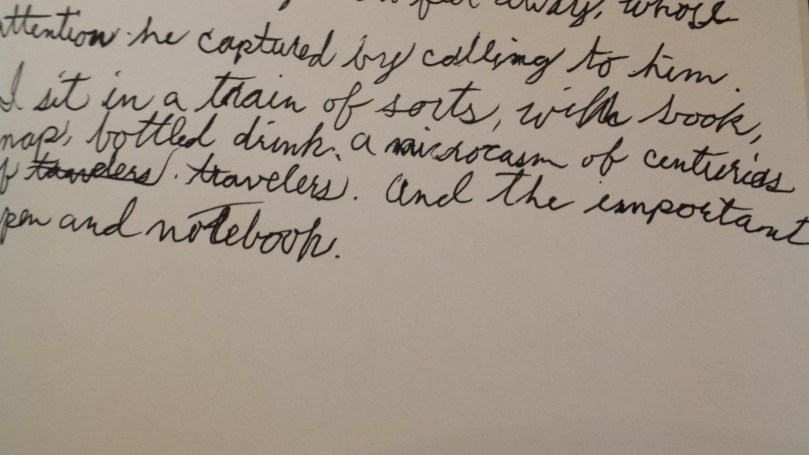 far away, whose
attention he captured by calling to him.
I sit in a train of sorts, with book,
map, bottled drink, a microcasm of centuries
of travelers travelers. And the important
pen and notebook.